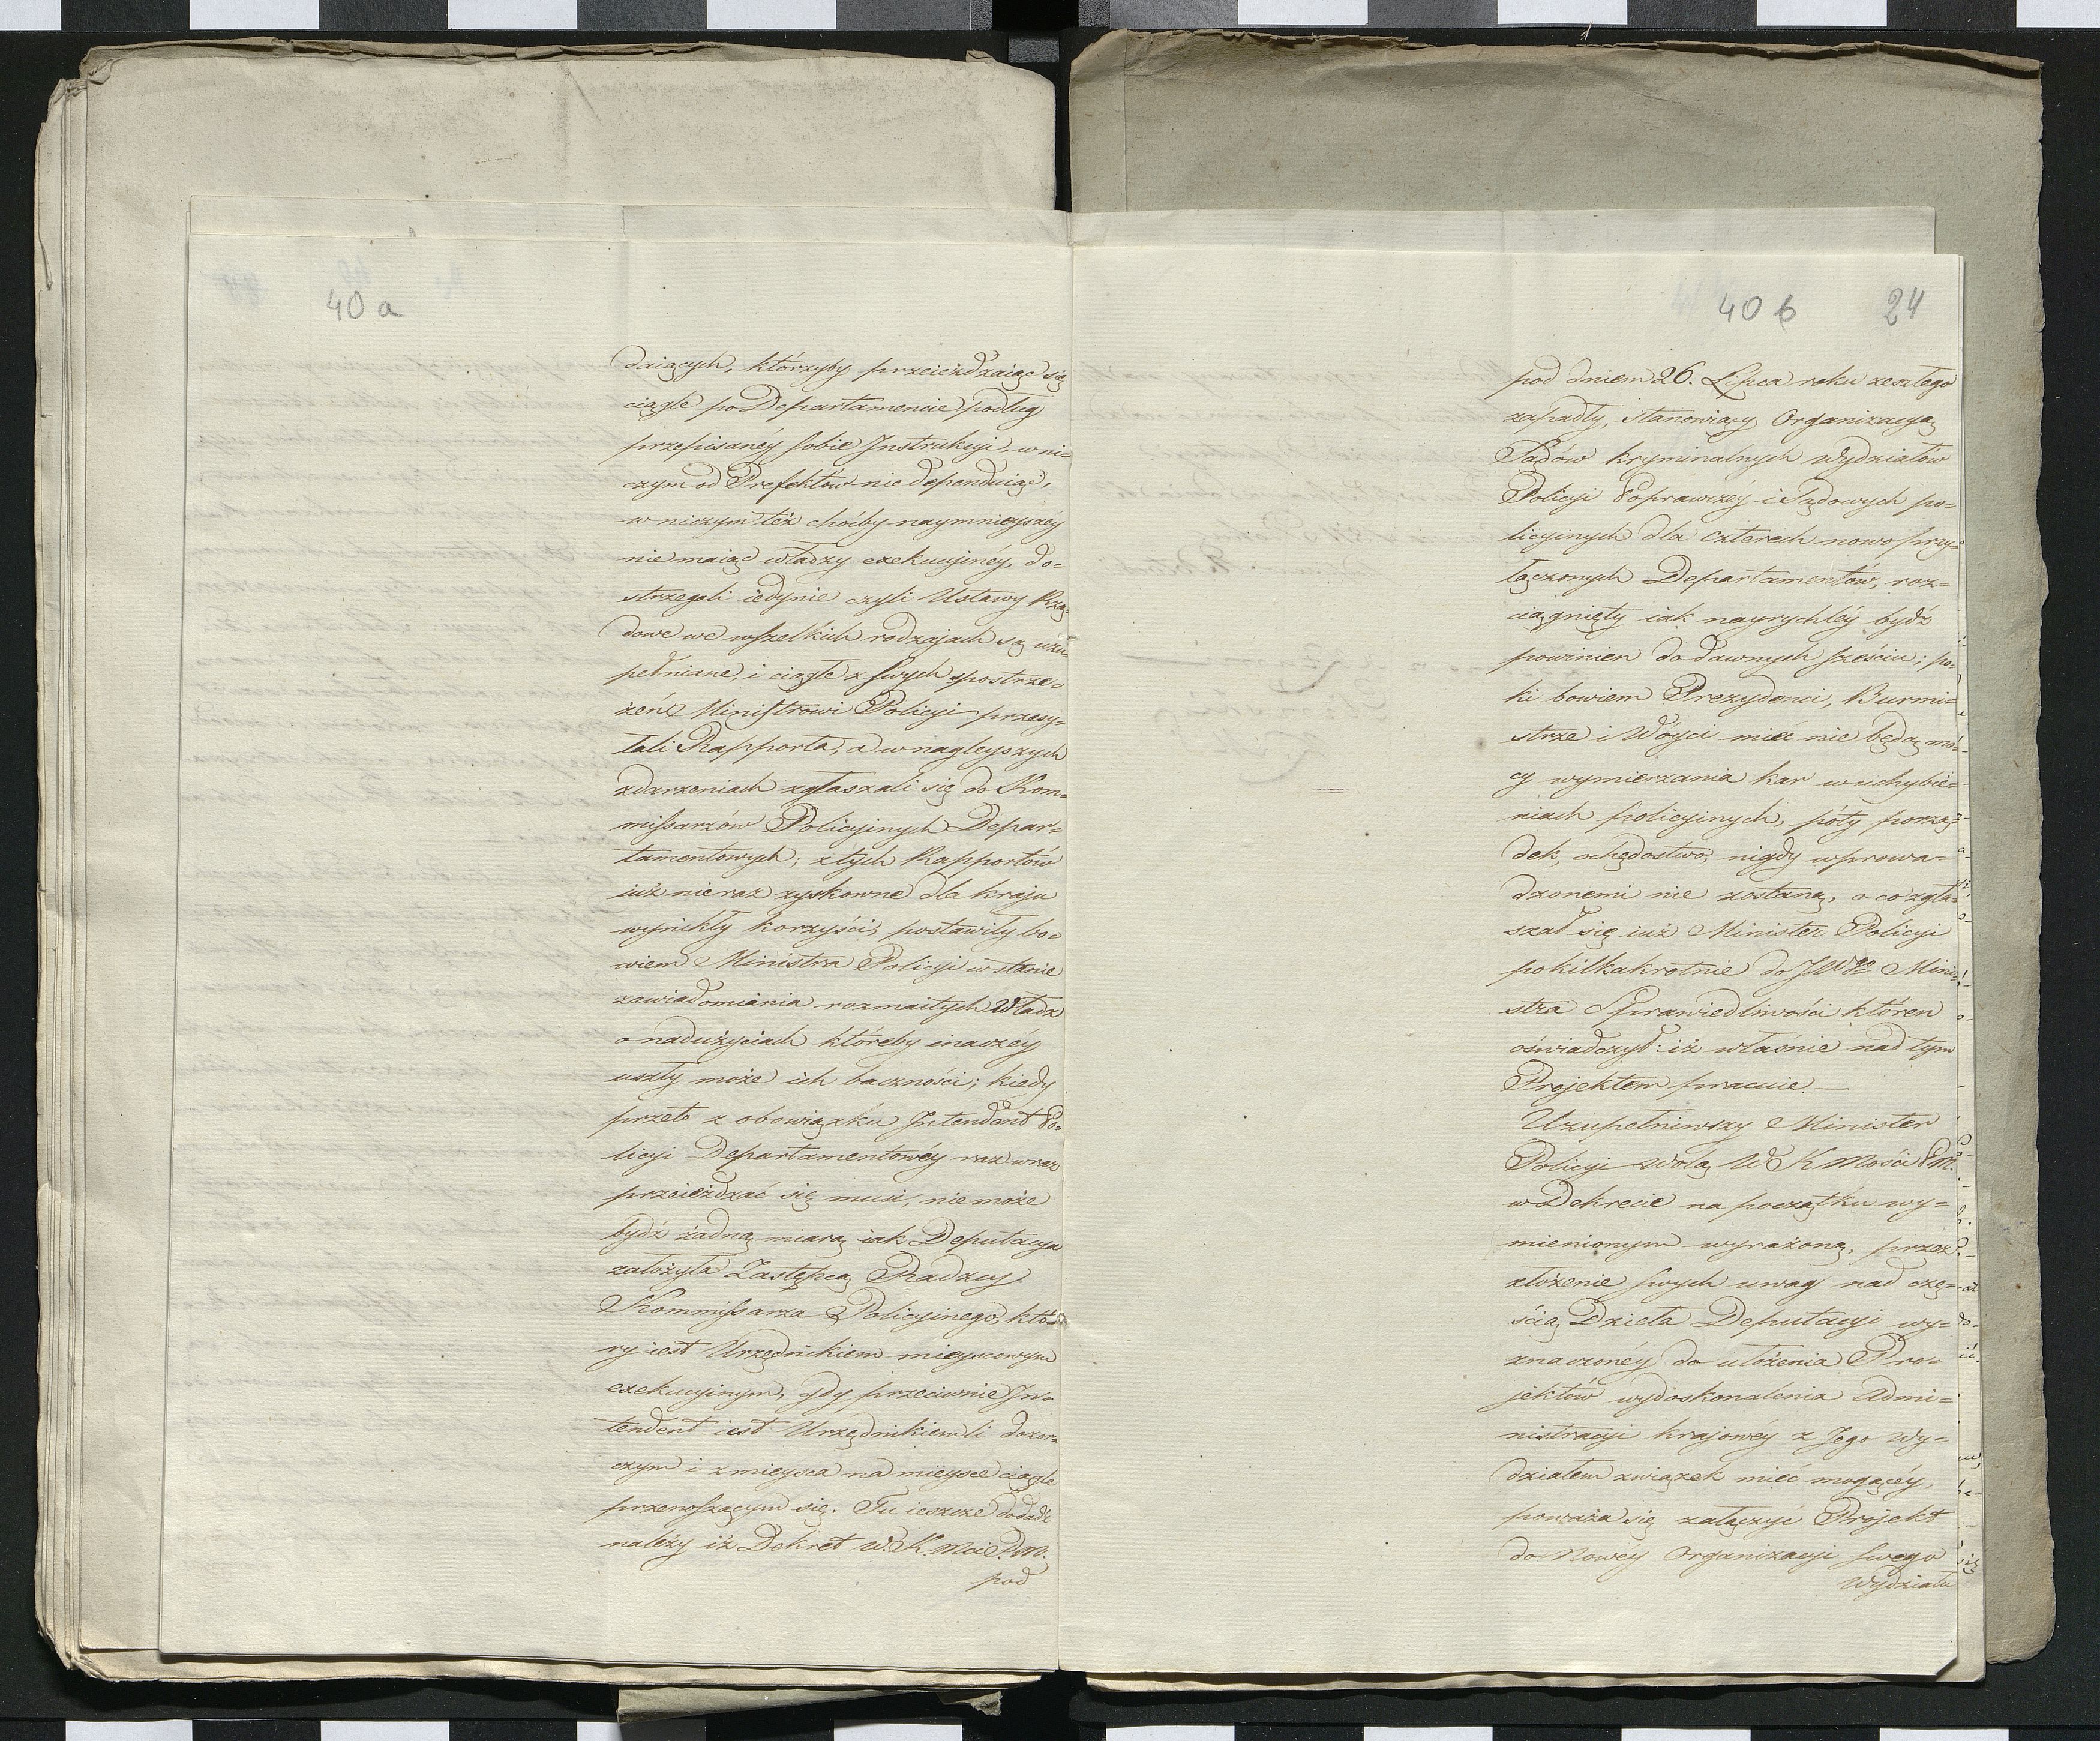 40 a
daiących, którzyby przeieżdzaiąc się
ciągle po Departamencie podług
przepisanéy sobie Instrukcyi, w ni=
czym od Prefektów nie dependuiąc,
w niczym téż choćby naymnieyszéy
nie maiąc władzy exekucyinéy, do=
strzegali iedynie czyli Ustawy Rzą=
dowe we wszelkich rodzajach są uzu=
pełniane, i ciągle z swych spostrze=
żeń Ministrowi Policyi przesy=
łali Rapporta, a w nagleyszych
zdarzeniach zgłaszali się do Kom=
missarzów Policyinych Depar=
tamentowych; z tych Rapportów
iuż nieraz zyskowne dla kraju
wynikły korzyści, postawiły bo=
wiem Ministra Policyi w stanie
zawiadomiania rozmaitych Władz
o nadużyciach któreby inaczéy
uszły może ich baczności; kiedy
przeto z obowiązku Intendent Po=
licyi Departamentowéy raz wraz
przeieżdzać się musi, nie może
bydź żadną miarą iak Deputacya
założyła Zastępcą Radzcy
Kommissarza Policyinego, któ=
ry iest Urzędnikiem mieyscowym
exekucyinym, gdy przeciwnie In=
tendent iest Urzędnikiem li dozor=
czym i z mieysca na mieysce ciągle
przenoszącym się. Tu ieszcze dodadź
należy iż Dekret W. K. Mci P. M.
pod
40 b 24
pod dniem 26. Lipca roku zeszłego
zapadły, stanowiący Organizacyą
Sądów kryminalnych Wydziałów
Policyi Poprawczéy i Sądowych po=
licyinych dla czterech nowo przy=
łączonych Departamentów, roz=
ciągnięty iak nayrychléy bydź
powinien do dawnych sześciu; pó=
ki bowiem Prezydenci, Burmi=
strze i Wóyci mieć nie będą mo=
cy wymierzania kar w uchybie=
niach policyinych, póty porzą=
dek, ochędostwo, nigdy wprowa=
dzonemi nie zostaną, o co zgła=
szał się iuż Minister Policyi
po kilkakrotnie do JWgo Mini=
stra Sprawiedliwości któren
oświadczył: iż właśnie nad tym
Projektem pracuie
Uzupełniwszy Minister
Policyi wolą W K Mości P. M.
w Dekrecie na początku wy=
mienionym wyrażoną, przez
złożenie swych uwag nad czę=
ścią Dzieła Deputacyi wy=
znaczonéy do ułożenia Pro=
jektów wydoskonalenia Admi=
nistracyi krajowéy z Jego Wy=
działem związek mieć mogącéy,
poważa się załączyć Projekt
do Nowéy Organizacyi swego
Wydziału